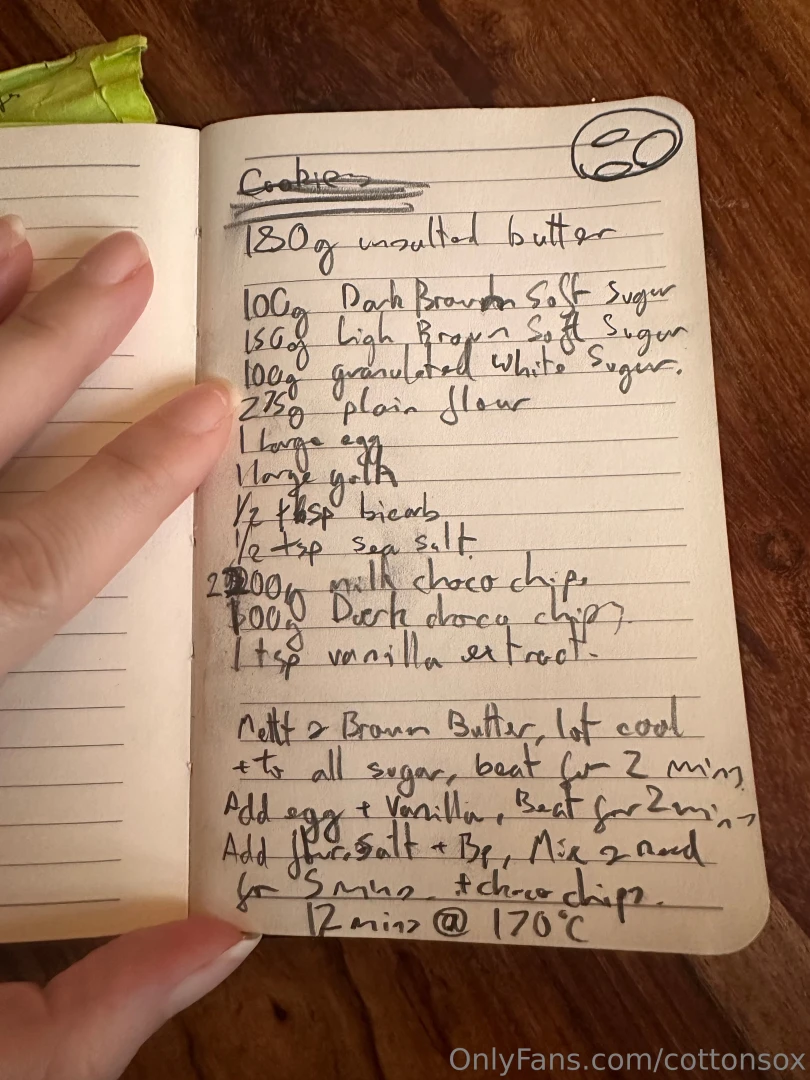 Cookies
180g unsalted butter
100g Dark Brown Soft Sugar
150g Ligh Brown Soft Sugar
100g granulated white Sugar.
275g plain flour
1 Large egg
1 large yolk
1/2 tbsp bicarb
1/2 tsp sea salt
200g milk choco chips
100g Dark choco chips.
1 tsp vanilla extract.
Melt & Brown Butter, let cool
+ to all sugar, beat for 2 mins
Add egg + Vanilla, Beat for 2 mins
Add flour, Salt + Bp, Mix & need
for 5 mins. + choco chips.
12 mins @ 170°C
OnlyFans.com/cottonsox